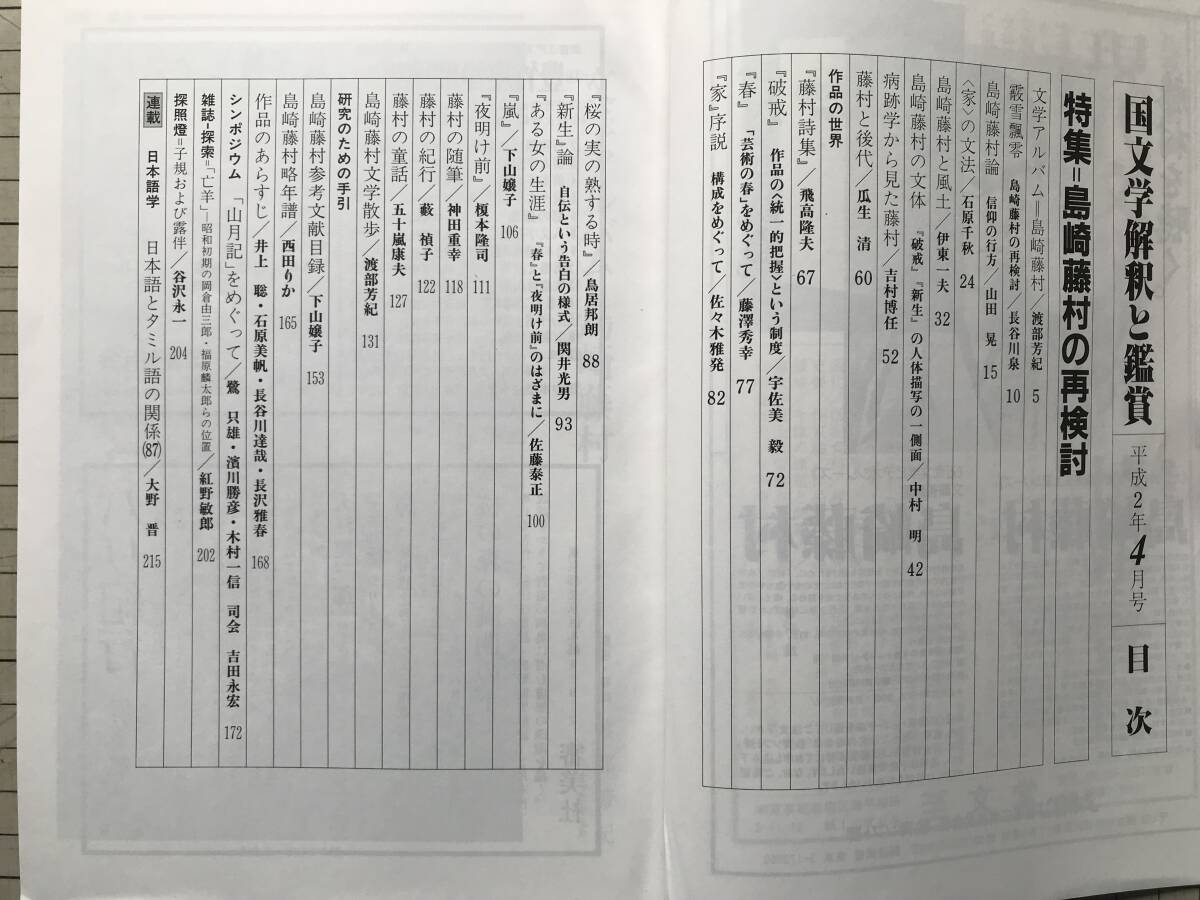 国文学解釈と鑑賞 平成2年4月号 目次
特集=島崎藤村の再検討
文学アルバム=島崎藤村/渡部芳紀 5
霰雪飄零 島崎藤村の再検討/長谷川泉 10
島崎藤村論 信仰の行方/山田 晃 15
〈家〉の文法/石原千秋 24
島崎藤村と風土/伊東一夫 32
島崎藤村の文体 『破戒』『新生』の人体描写の一側面/中村 明 42
病跡学から見た藤村/吉村博任 52
藤村と後代/瓜生 清 60
作品の世界
『藤村詩集』/飛高隆夫 67
『破戒』 作品の〈統一的把握〉という制度/宇佐美 毅 72
『春』 「芸術の春」をめぐって/藤澤秀幸 77
『家』序説 構成をめぐって/佐々木雅発 82
『桜の実の熟する時』/鳥居邦朗 88
『新生』論 自伝という告白の様式/関井光男 93
『ある女の生涯』 『春』と『夜明け前』のはざまに/佐藤泰正 100
『嵐』/下山嬢子 106
『夜明け前』/榎本隆司 111
藤村の随筆/神田重幸 118
藤村の紀行/藪 禎子 122
藤村の童話/五十嵐康夫 127
島崎藤村文学散歩/渡部芳紀 131
研究のための手引
島崎藤村参考文献目録/下山嬢子 153
島崎藤村略年譜/西田りか 165
作品のあらすじ/井上 聡・石原美帆・長谷川達哉・長沢雅春 168
シンポジウム 「山月記」をめぐって/鷺 只雄・濱川勝彦・木村一信 司会 吉田永宏 172
雑誌-探索=「亡羊」―昭和初期の岡倉由三郎・福原麟太郎らの位置/紅野敏郎 202
探照燈=子規および露伴/谷沢永一 204
連載 日本語学 日本語とタミル語の関係(87)/大野 晋 215